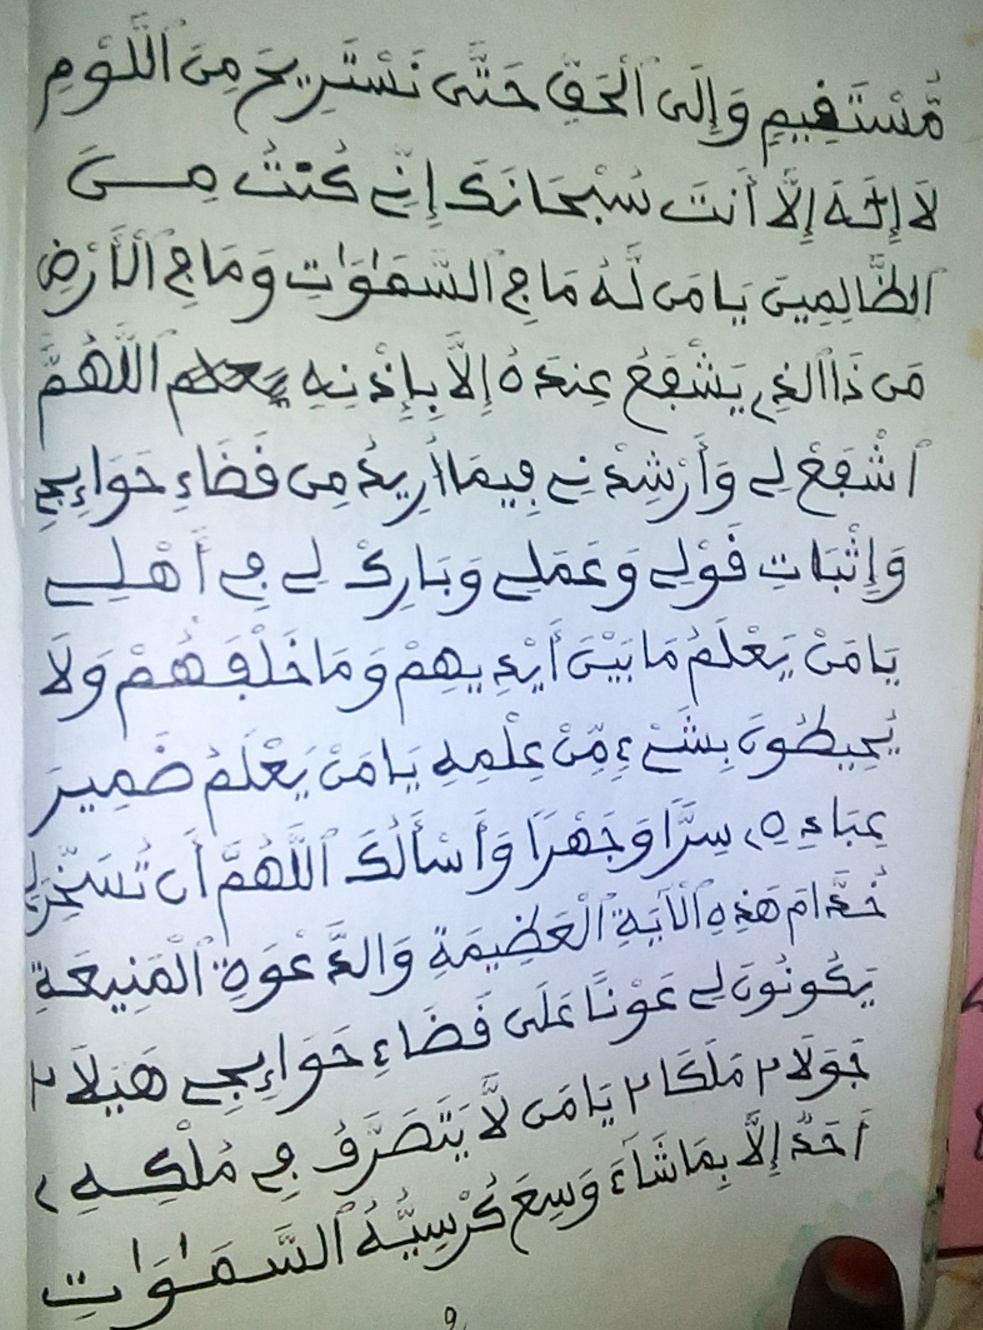 مُّسْتَقِيمٍ وَإِلَى ٱلْحَقِّ حَتَّى نَسْتَرِيحَ مِنَ ٱللَّوْمِ
لَا إِلَٰهَ إِلَّا أَنتَ سُبْحَانَكَ إِنِّي كُنْتُ مِنَ
ٱلظَّالِمِينَ يَا مَن لَّهُ مَا فِي ٱلسَّمَٰوَٰتِ وَمَا فِي ٱلْأَرْضِ
مَن ذَا ٱلَّذِي يَشْفَعُ عِندَهُ إِلَّا بِإِذْنِهِ ٱللَّهُمَّ
ٱشْفَعْ لِي وَأَرْشِدْنِي فِيمَا أُرِيدُ مِن قَضَاءِ حَوَائِجِي
وَإِثْبَاتِ قَوْلِي وَعَمَلِي وَبَارِكْ لِي فِي أَهْلِي
يَا مَنْ يَعْلَمُ مَا بَيْنَ أَيْدِيهِمْ وَمَا خَلْفَهُمْ وَلَا
يُحِيطُونَ بِشَيْءٍ مِّنْ عِلْمِهِ يَا مَنْ يَعْلَمُ ضَمِيرَ
عِبَادِهِ سِرًّا وَجَهْرًا وَأَسْأَلُكَ ٱللَّهُمَّ أَن تُسَخِّرَ لِي
خُدَّامَ هَذِهِ ٱلْآيَةِ ٱلْعَظِيمَةِ وَالدَّعْوَةِ ٱلْمَنِيعَةِ
يَكُونُونَ لِي عَوْنًا عَلَى قَضَاءِ حَوَائِجِي هَيَلَا ٢
جَوَلَا ٢ مَلَكَا ٢ يَا مَن لَّا يَتَصَرَّفُ فِي مُلْكِهِ
أَحَدٌ إِلَّا بِمَا شَاءَ وَسِعَ كُرْسِيُّهُ ٱلسَّمَٰوَٰتِ